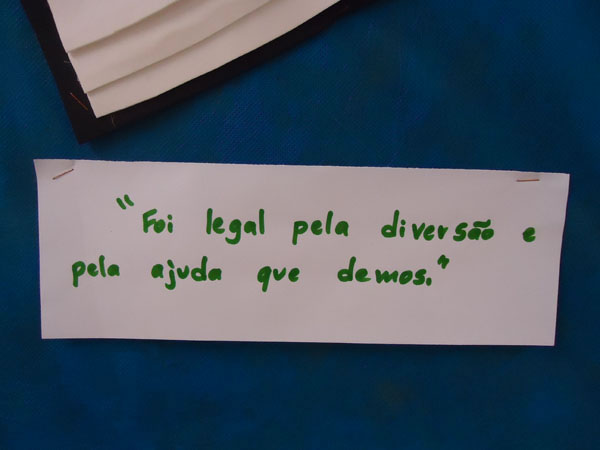 "Foi legal pela diversão e
pela ajuda que demos."